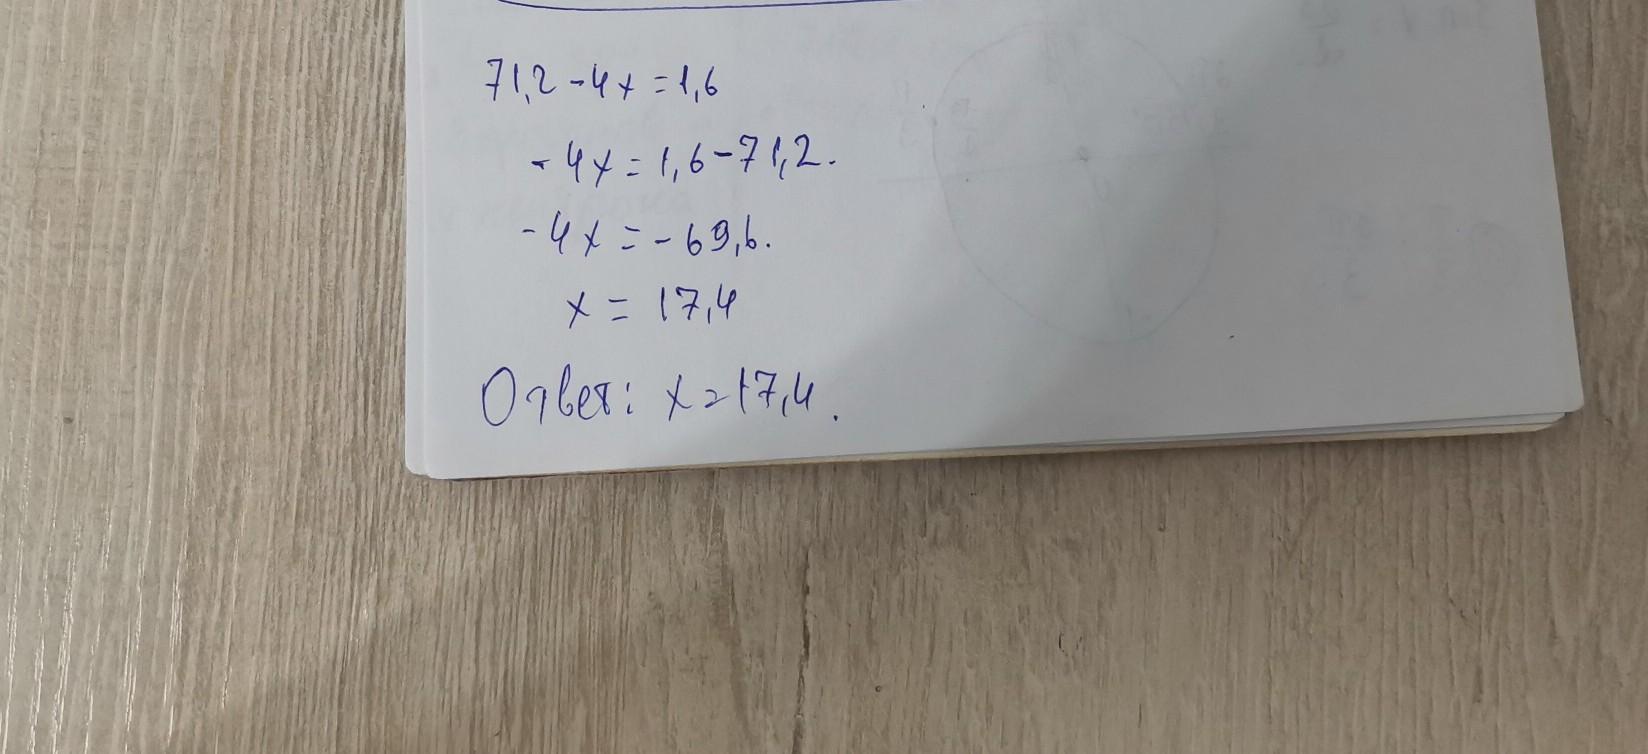 71,2 - 4x = 1,6
- 4x = 1,6 - 71,2.
- 4x = - 69,6.
x = 17,4
Ответ: x = 17,4.